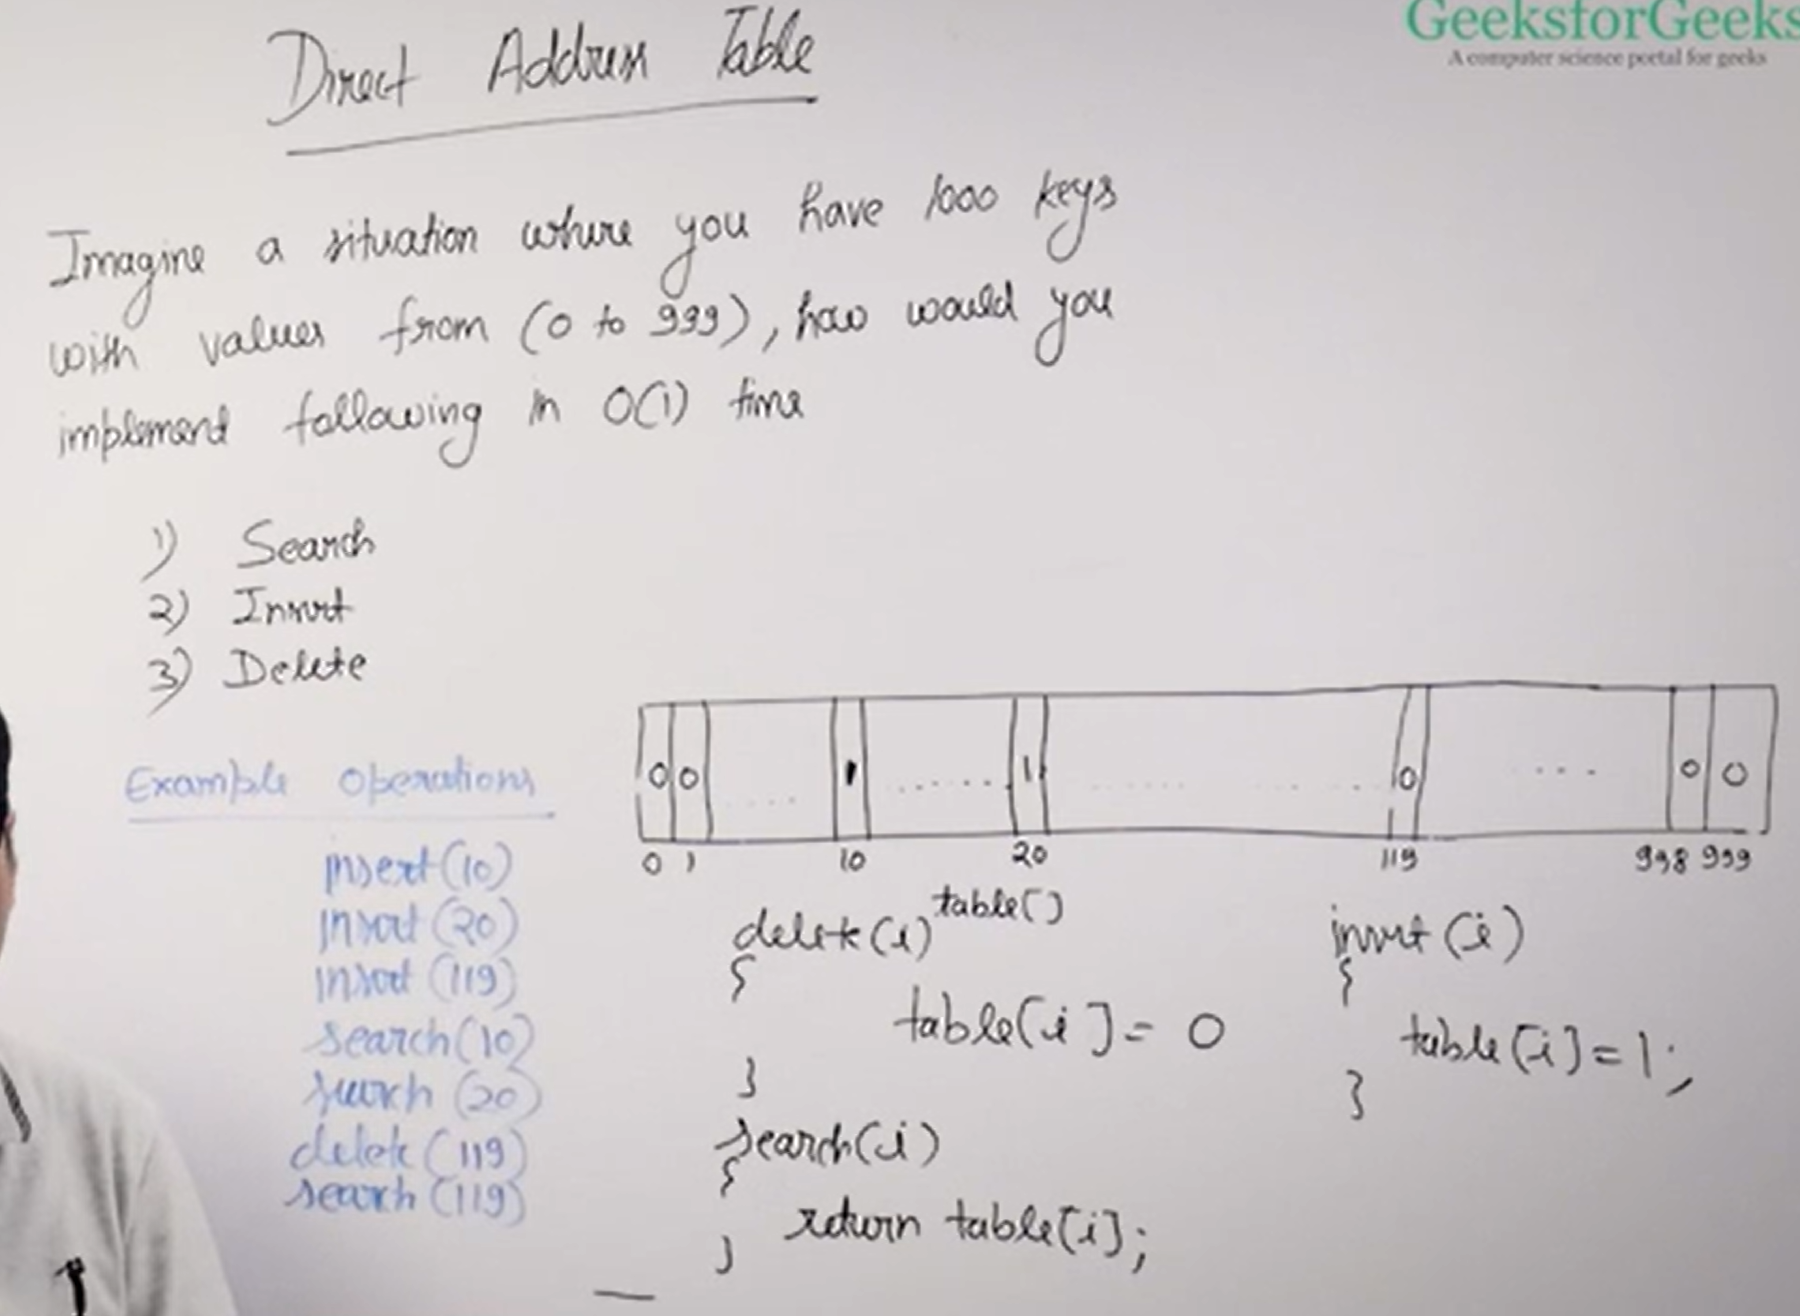 GeeksforGeeks
A computer science portal for geeks
Direct Address Table
Imagine a situation where you have 1000 keys
with values from (0 to 999), how would you
implement following in O(1) time
1) Search
2) Insert
3) Delete
Example Operations
insert(10)
insert(20)
insert(119)
search(10)
search(20)
delete(119)
search(119)
0 0 1 ....... 1 ....... 0 .... 0 0
0 1 10 20 119 998 999
table[]
delete(i)
{
table[i] = 0
}
search(i)
{
return table[i];
}
insert(i)
{
table[i] = 1;
}